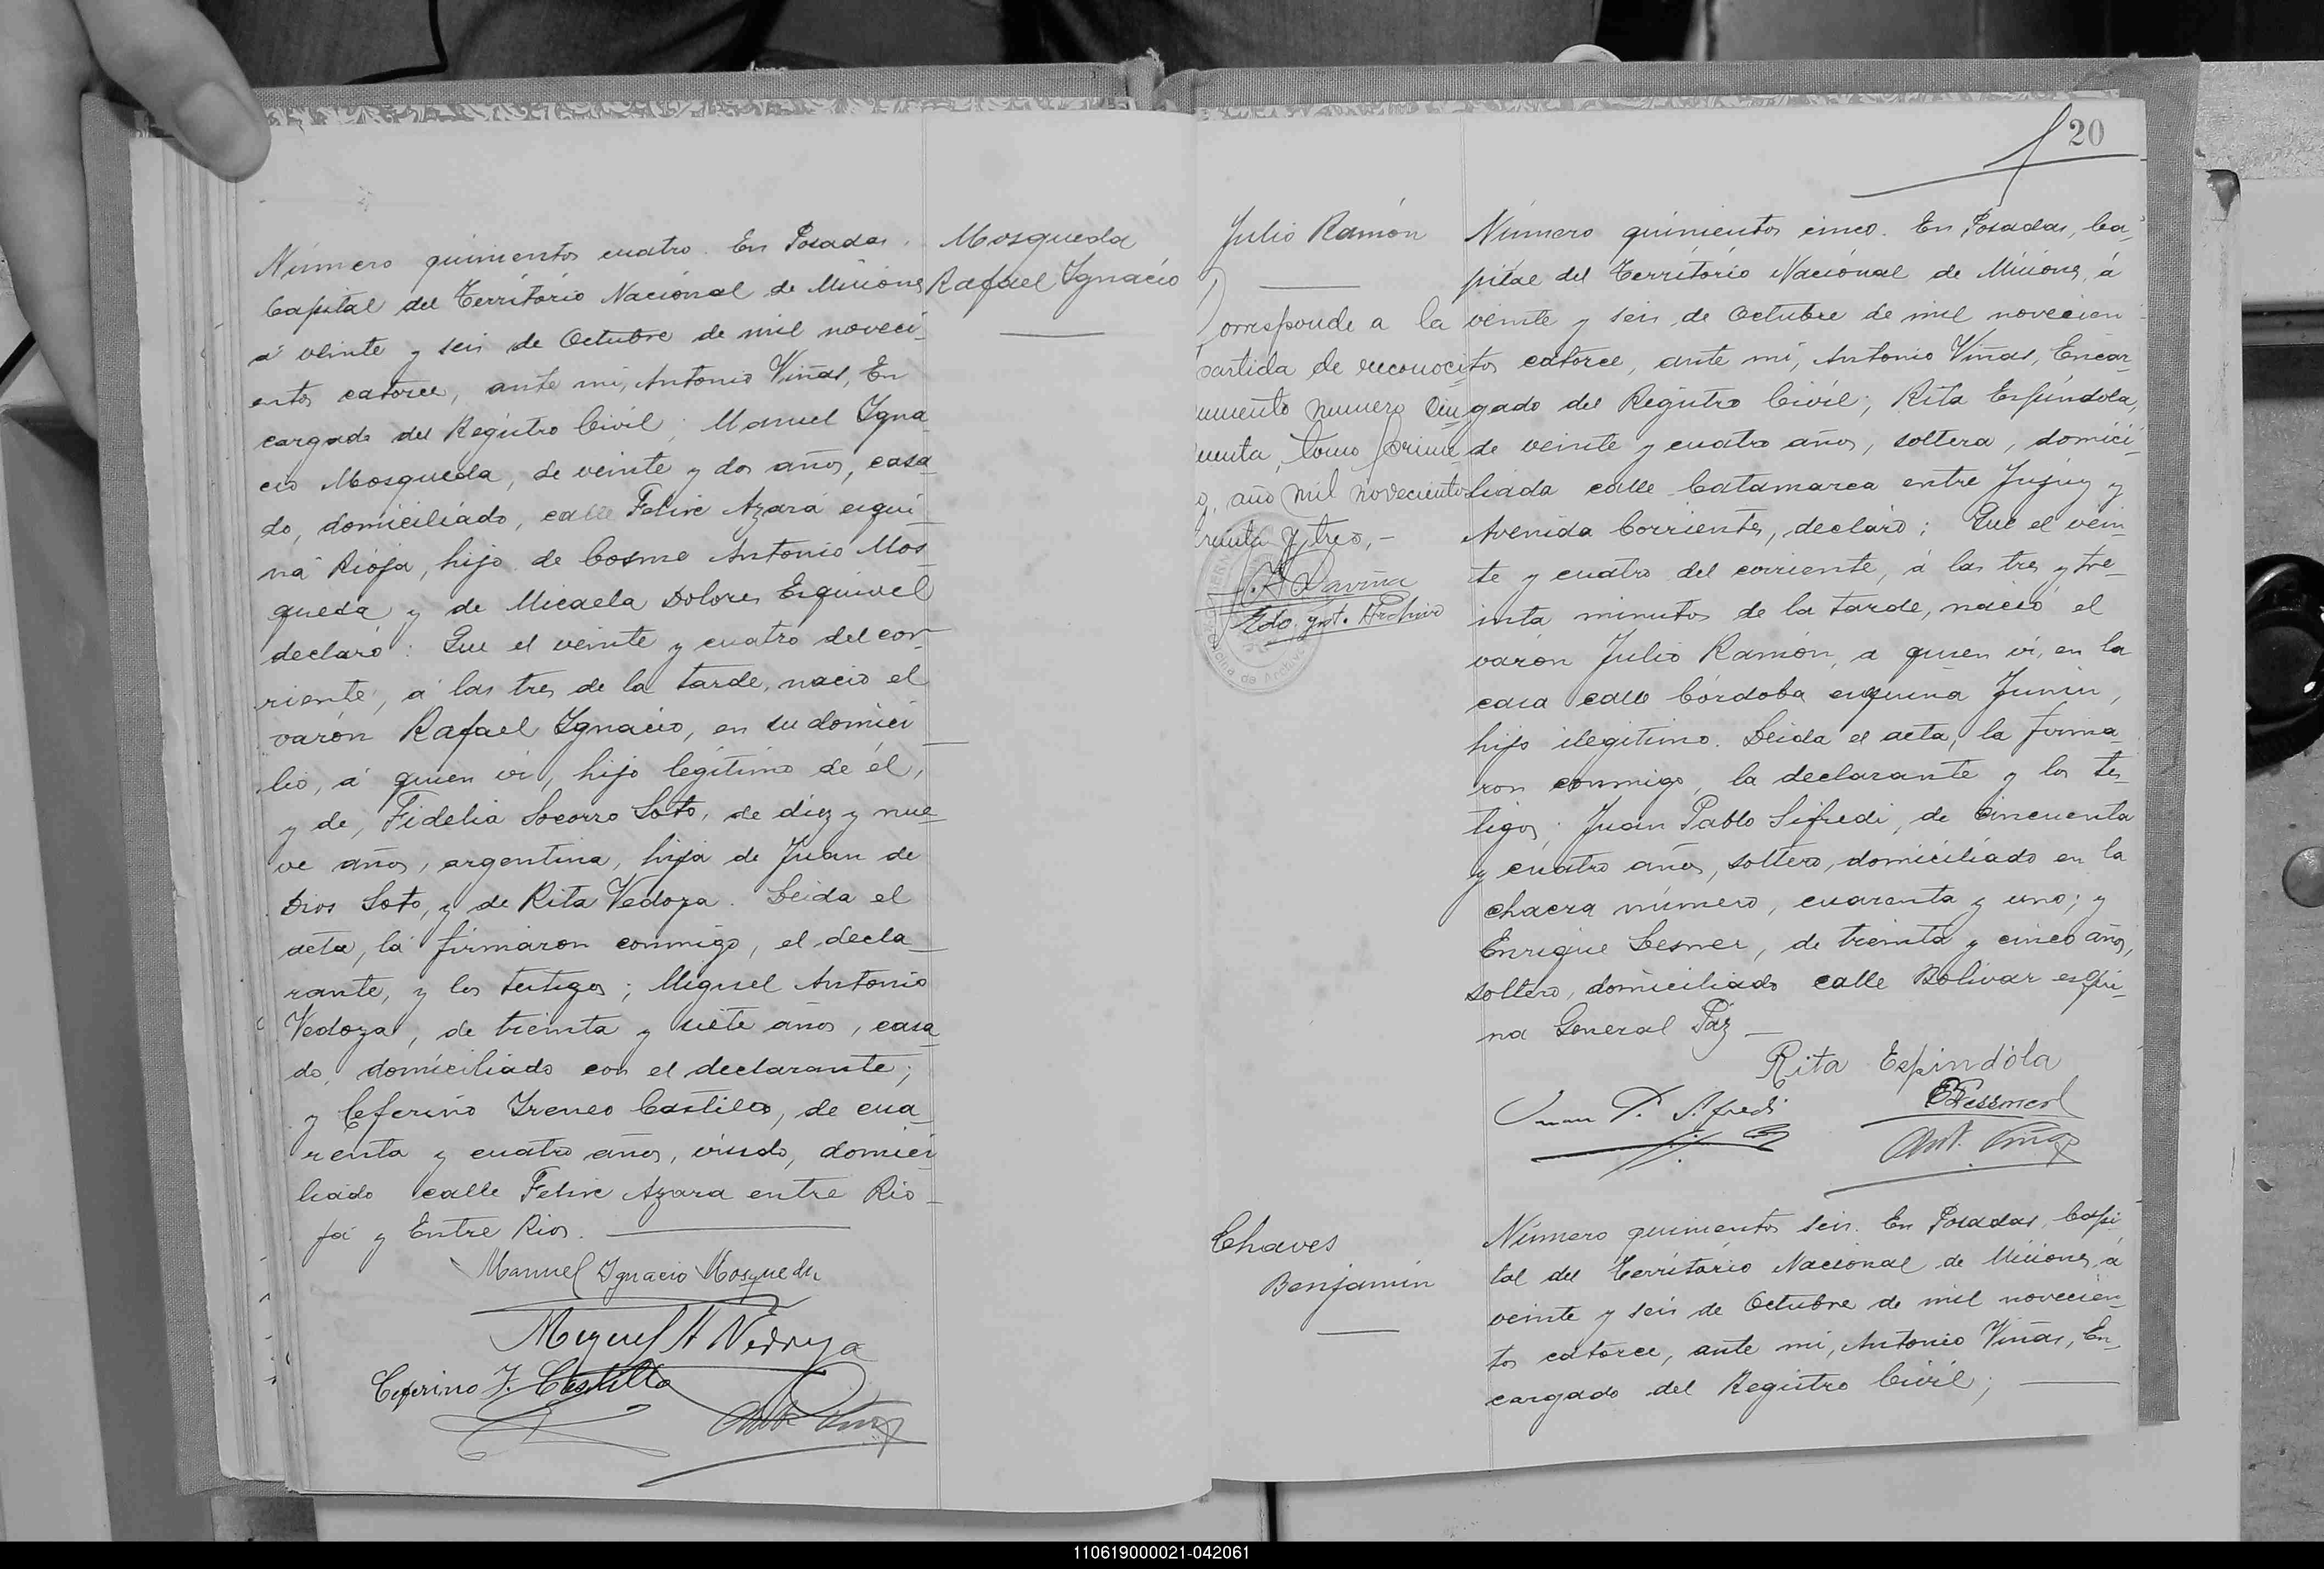 Número quinientos cuatro. En Posadas,
Capital del Território Nacional de Misiones
á veinte y seis de Octubre de mil noveci-
entos catorce, ante mi, Antonio Viñas, En
cargado del Registro Civil; Manuel Igna
cio Mosqueda, de veinte y dos años, casa
do, domiciliado, calle Felix Azara esqui-
na Rioja, hijo de Cosme Antonio Mos
queda y de Micaela Dolores Esquivel
declaró: Que el veinte y cuatro del cor-
riente, á las tres de la tarde, nació el
varón Rafael Ignacio, en su domici
lio, á quien vi, hijo legítimo de él,
y de, Fidelia Socorro Soto, de diez y nue-
ve años, argentina, hija de Juan de
Dios Soto, y de Rita Vedoya. Leida el
acta, la firmaron conmigo, el decla-
rante, y los testigos; Miguel Antonio
Vedoya, de treinta y siete años, casa
do, domiciliado con el declarante;
y Ceferino Ireneo Castillo, de cua-
renta y cuatro años, viudo, domici-
liado calle Felix Azara entre Rio-
ja y Entre Rios.
Manuel Ignacio Mosqueda
Miguel A Vedoya
Ceferino I. Castillo
Ant. Viñas
Mosqueda
Rafael Ignacio
20
Julio Ramón
orresponde a la
partida de reconoci
umento numero Cin
cuenta, tomo prime
o, año mil novecientos
reinta y tres,-
Edo. gnt. Archivo
Número quinientos cinco. En Posadas, Ca-
pital del Território Nacional de Misiones, á
veinte y seis de Octubre de mil novecien-
tos catorce, ante mi, Antonio Viñas, Encar-
gado del Registro Civil; Rita Espíndola,
de veinte y cuatro años, soltera, domici-
liada calle Catamarca entre Jujuy y
Avenida Corrientes, declaró: Que el vein-
te y cuatro del corriente, á las tres y tre-
inta minutos de la tarde, nació el
varón Julio Ramón, a quien vi, en la
casa calle Córdoba esquina Junin,
hijo ilegítimo. Leida el acta, la firma-
ron conmigo, la declarante y los tes-
tigos; Juan Pablo Sifredi, de cincuenta
y cuatro años, soltero, domiciliado en la
chacra número, cuarenta y uno; y
Enrique Lesner, de treinta y cinco años,
soltero, domiciliado calle Bolivar esqui-
na General Paz
Rita Espíndola
Juan P. Sifredi
E Lessner
Ant. Viñas
Chaves
Benjamin
Número quinientos seis. En Posadas, Capi
tal del Território Nacional de Misiones, á
veinte y seis de Octubre de mil novecien-
tos catorce, ante mi, Antonio Viñas, En-
cargado del Registro Civil;
110619000021-042061